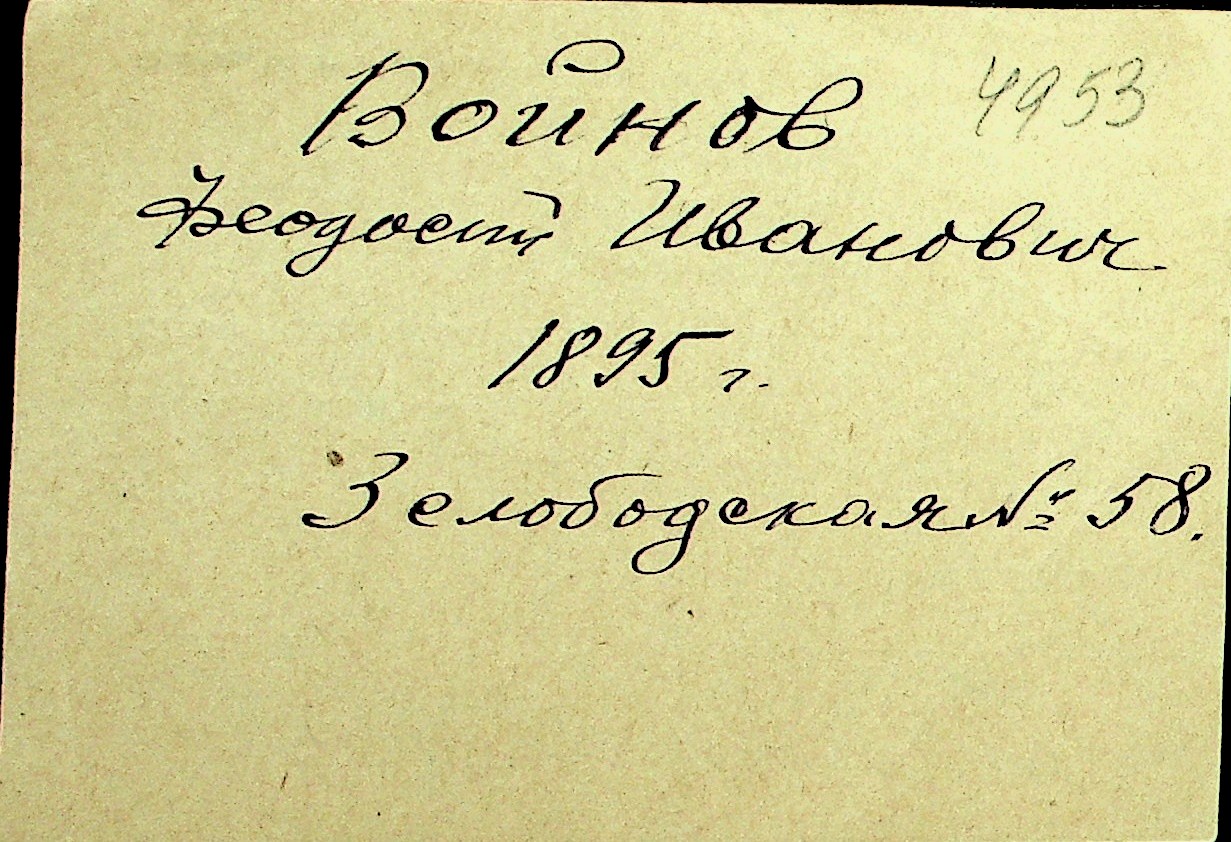 Войнов 4953
Феодосий Иванович
1895 г.
Зелободская № 58.